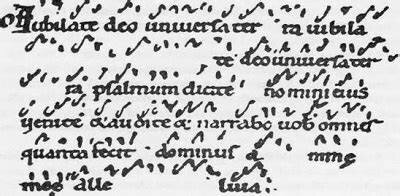 OFF Iubilate deo uniuersa ter ra iubila
te deo uniuersa ter
ra psalmum dicite nomini eius
uenite & audite & narrabo uob omnis
quanta fecit dominus a nime
mee alle luia